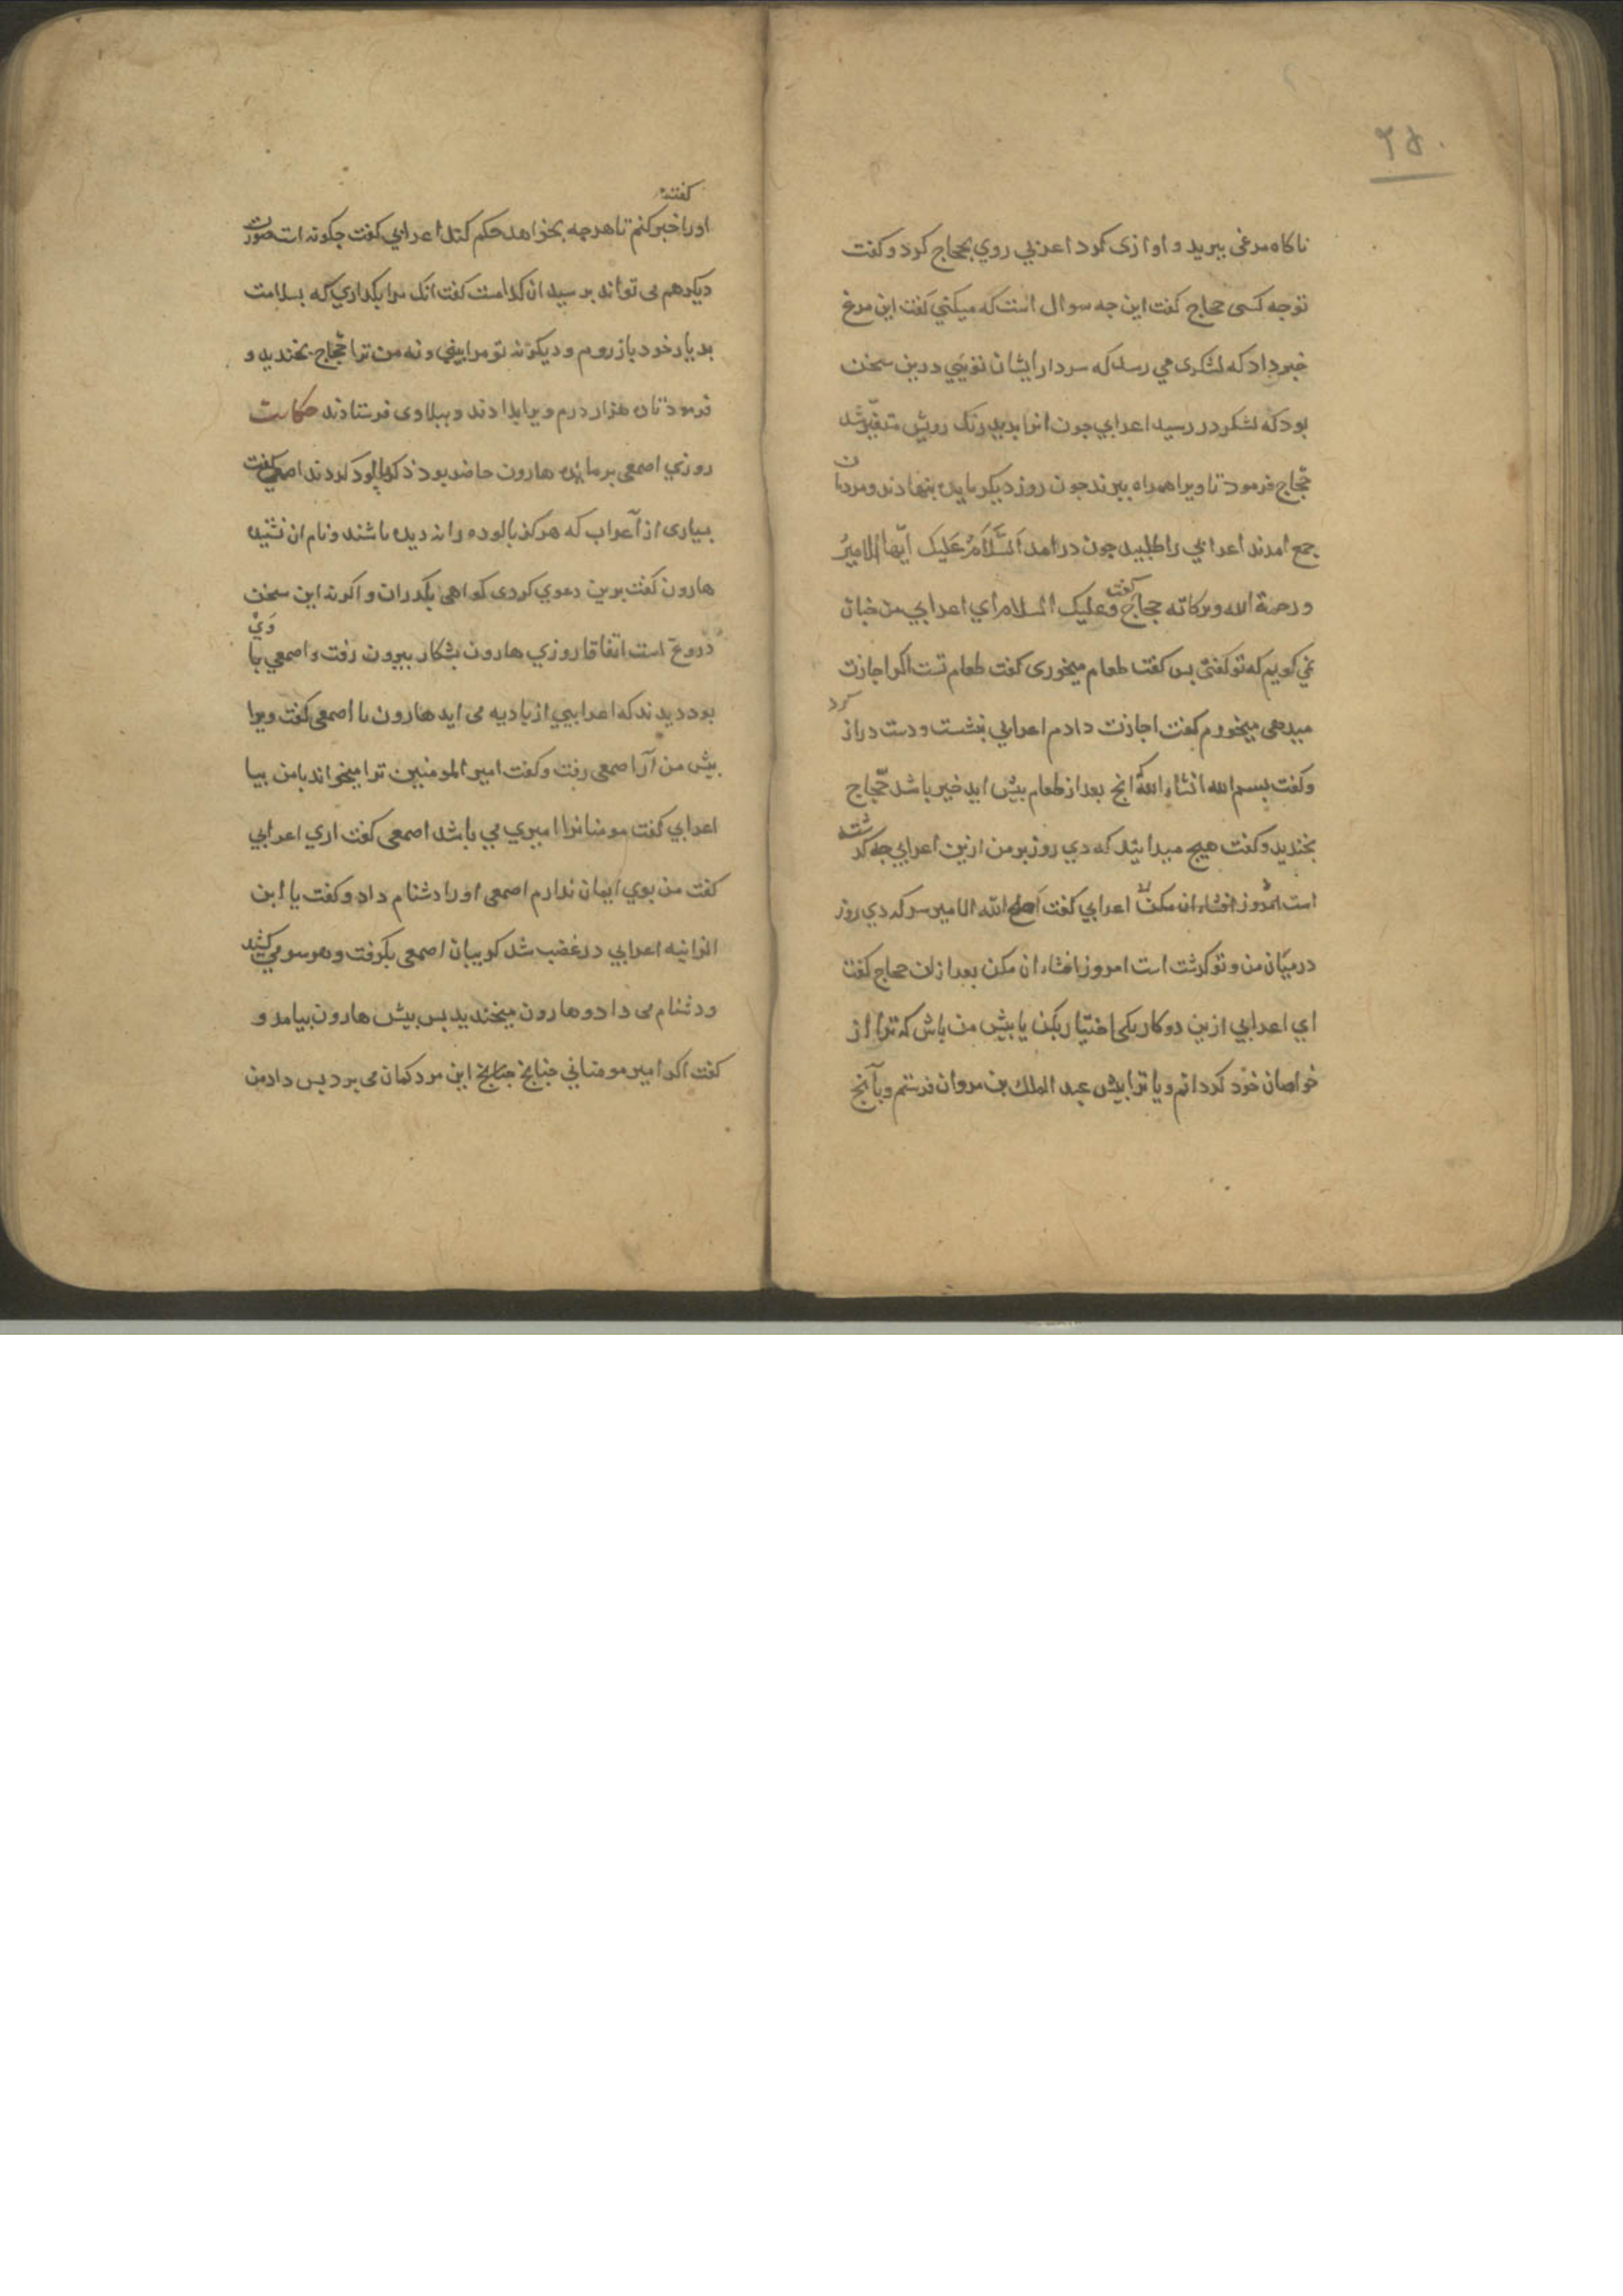 ۲۵۰
ناکاه مرغی ببرید و اوازی کرد اعرابی روي بحجاج کرد و کفت
تو چه کسی حجاج کفت این جه سوال است که میکني کفت این مرغ
خبر داد که لشکری می رسد که سردار ایشان تویی درین سخن
بود که لشکر در رسید اعرابي جون انرا بدید رنک رویش متغیر شد
حجاج فرمود تا ویرا همراه ببرند جون روز دیکر مایده بنهادند و مردمان
جمع امدند اعرابي را طلبید جون درامد اَلسَّلاَمُ عَلَیک ایّها الامیرُ
و رحمة الله و برکاته حجاج کفت وعلیک السلام اي اعرابي من جنان
نمي کویم که تو کفتی بس کفت طعام میخوری کفت طعام تست اکر اجازت
میدهی میخورم کفت اجازت دادم اعرابي بنشست و دست دراز کرد
و کفت بسم الله انشاء الله انج بعد از طعام بیش اید خیر باشد حجّاج
بخندید و کفت هیج میدانید که دي روز بر من ازین اعرابي جه کذشته
است امروز افشاء ان مکن اعرابي کفت اصلح الله الامیر سر که دي روز
درمیان من و تو کذشت است امروز افشاء ان مکن بعد ازان حجاج کفت
اي اعرابي ازین دو کار یکی اختیار بکن یا بیش من باش که ترا از
خواصان خوّد کردانم و یا ترا بیش عبد الملك بن مروان فرستم و بآنج
کفته
اورا خبر کنم تا هرجه بخواهد حکم کند اعرابي کفت جکونه است صورت
دیکر هم می تواند بر سید ان کدامست کفت انک مرا بکداري که بسلامت
بدیار خود باز روم و دیکر نه تو مرا بینی و نه من ترا حجّاج بخندید و
فرمود تا هزار درم ویرا بدادند و ببلاد وی فرستادند حکایت
روزي اصمعی بر مایده هارون حاضر بود ذکر بالوده کردند اصمعي کفت
بسیاری از أعراب که هرکز بالوده را نه دیده باشند و نام ان نشنیده
هارون کفت برین دعوي کردی کواهی بکذران و اکرنه این سخن
دروغ است اتفاقا روزي هارون بشکار بیرون رفت و اصمعي با وَيْ
بود دیدند که اعرابیی از بادیه می اید هارون با اصمعی کفت ویرا
بیش من آر اصمعی رفت و کفت امیر المومنین ترا میخواند با من بیا
اعرابي کفت مومنانرا امیري مي باشد اصمعی کفت اري اعرابي
کفت من بوي ایمان ندارم اصمعی اورا دشنام داد و کفت یا ابن
الزانیه اعرابي در غضب شد کریبان اصمعی بکرفت و هر سو می کشید
و دشنام می داد و هارون میخندید بس بیش هارون بیامد و
کفت اکر امیر مومناني جنابخ جنابخ این مرد کمان می برد بس داد من